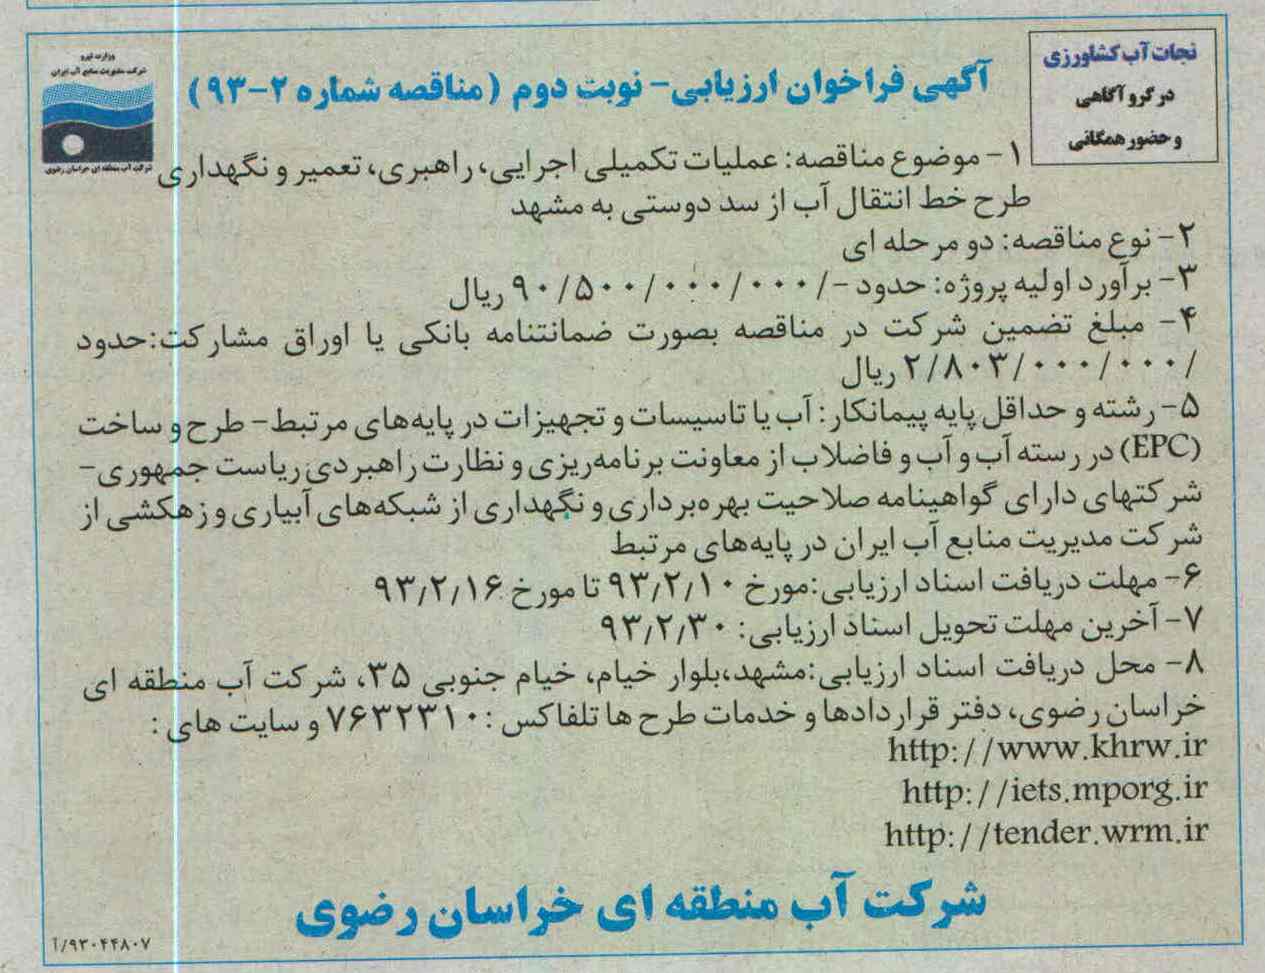 نجات آب کشاورزی
در گرو آگاهی
و حضور همگانی
وزارت نیرو
شرکت مدیریت منابع آب ایران
شرکت آب منطقه ای خراسان رضوی
آگهی فراخوان ارزیابی- نوبت دوم (مناقصه شماره ۲-۹۳)
۱- موضوع مناقصه: عملیات تکمیلی اجرایی، راهبری، تعمیر و نگهداری
طرح خط انتقال آب از سد دوستی به مشهد
۲- نوع مناقصه: دو مرحله ای
۳- برآورد اولیه پروژه: حدود -/۹۰/۵۰۰/۰۰۰/۰۰۰ ریال
۴- مبلغ تضمین شرکت در مناقصه بصورت ضمانتنامه بانکی یا اوراق مشارکت:حدود
/۲/۸۰۳/۰۰۰/۰۰۰ ریال
۵- رشته و حداقل پایه پیمانکار: آب یا تاسیسات و تجهیزات در پایه‌های مرتبط- طرح و ساخت
(EPC) در رسته آب و آب و فاضلاب از معاونت برنامه‌ریزی و نظارت راهبردی ریاست جمهوری-
شرکتهای دارای گواهینامه صلاحیت بهره‌برداری و نگهداری از شبکه‌های آبیاری و زهکشی از
شرکت مدیریت منابع آب ایران در پایه‌های مرتبط
۶- مهلت دریافت اسناد ارزیابی:مورخ ۹۳/۲/۱۰ تا مورخ ۹۳/۲/۱۶
۷- آخرین مهلت تحویل اسناد ارزیابی: ۹۳/۲/۳۰
۸- محل دریافت اسناد ارزیابی:مشهد،بلوار خیام، خیام جنوبی ۳۵، شرکت آب منطقه ای
خراسان رضوی، دفتر قراردادها و خدمات طرح ها تلفاکس :۷۶۳۲۳۱۰ و سایت های :
http://www.khrw.ir
http://iets.mporg.ir
http://tender.wrm.ir
شرکت آب منطقه ای خراسان رضوی
۹۳۰۴۴۸۰۷/آ